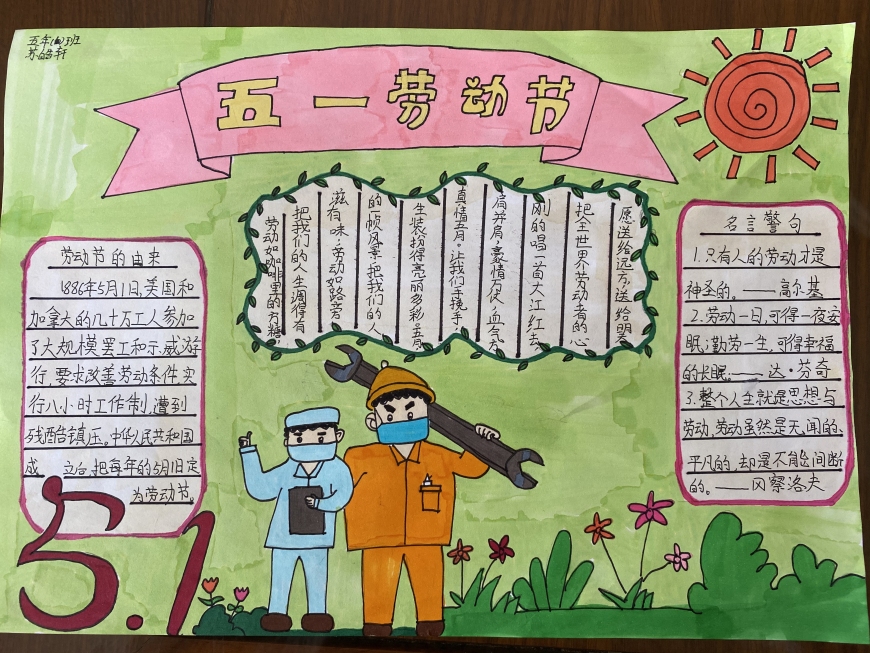 五年(四)班
苏皓轩
五一劳动节
劳动节的由来
1886年5月1日,美国和
加拿大的几十万工人参加
了大规模罢工和示威游
行,要求改善劳动条件,实
行八小时工作制,遭到
残酷镇压。中华人民共和国
成 立后,把每年的5月1日定
为劳动节。
劳动如咖啡里的方糖
把我们的人生调得有
滋有味;劳动如路旁
的帧风景,把我们的人
生装扮得亮丽多彩,五月
真情五月,让我们手挽手,
肩并肩,豪情万丈,血气方
刚的唱一首大江红去,
把全世界劳动者的心
愿送给远方,送给明
名言警句
1.只有人的劳动才是
神圣的。——高尔基
2.劳动一日,可得一夜安
眠;勤劳一生,可得幸福
的长眠。——达·芬奇
3.整个人生就是思想与
劳动,劳动虽然是无闻的、
平凡的,却是不能间断
的。——冈察洛夫
5.1